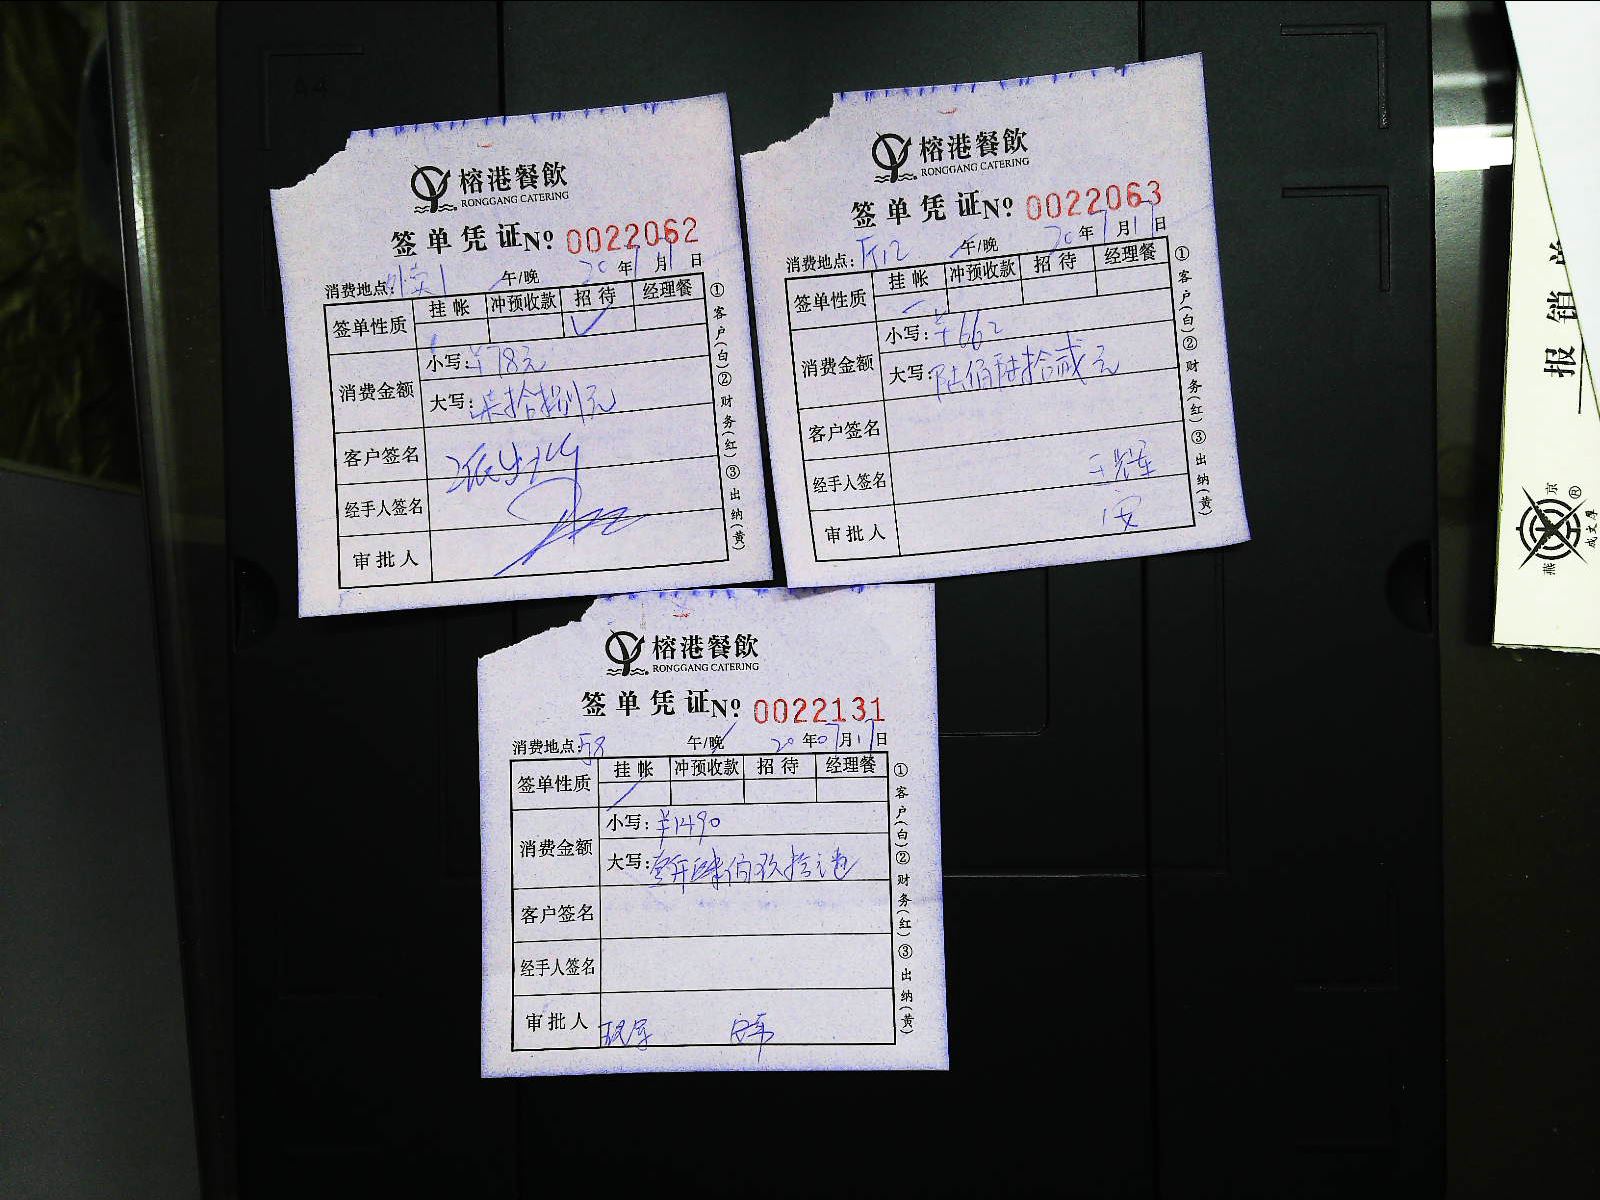 榕港餐飲
RONGGANG CATERING
签单凭证№ 0022062
消费地点:外卖1 午/晚 20年 月 日
签单性质 挂帐 冲预收款 招待 经理餐
✓
消费金额 小写:¥78元
大写:柒拾捌元
客户签名
经手人签名
审批人
①客户(白)②财务(红)③出纳(黄)
榕港餐飲
RONGGANG CATERING
签单凭证№ 0022063
消费地点: 午/晚 20年 月 日
签单性质 挂帐 冲预收款 招待 经理餐
消费金额 小写:¥662
大写:陆佰陆拾贰元
客户签名
经手人签名
审批人
①客户(白)②财务(红)③出纳(黄)
榕港餐飲
RONGGANG CATERING
签单凭证№ 0022131
消费地点: 午/晚 20年07月17日
签单性质 挂帐 冲预收款 招待 经理餐
消费金额 小写:¥1490
大写:壹仟肆佰玖拾元
客户签名
经手人签名
审批人
①客户(白)②财务(红)③出纳(黄)
报销单
A4